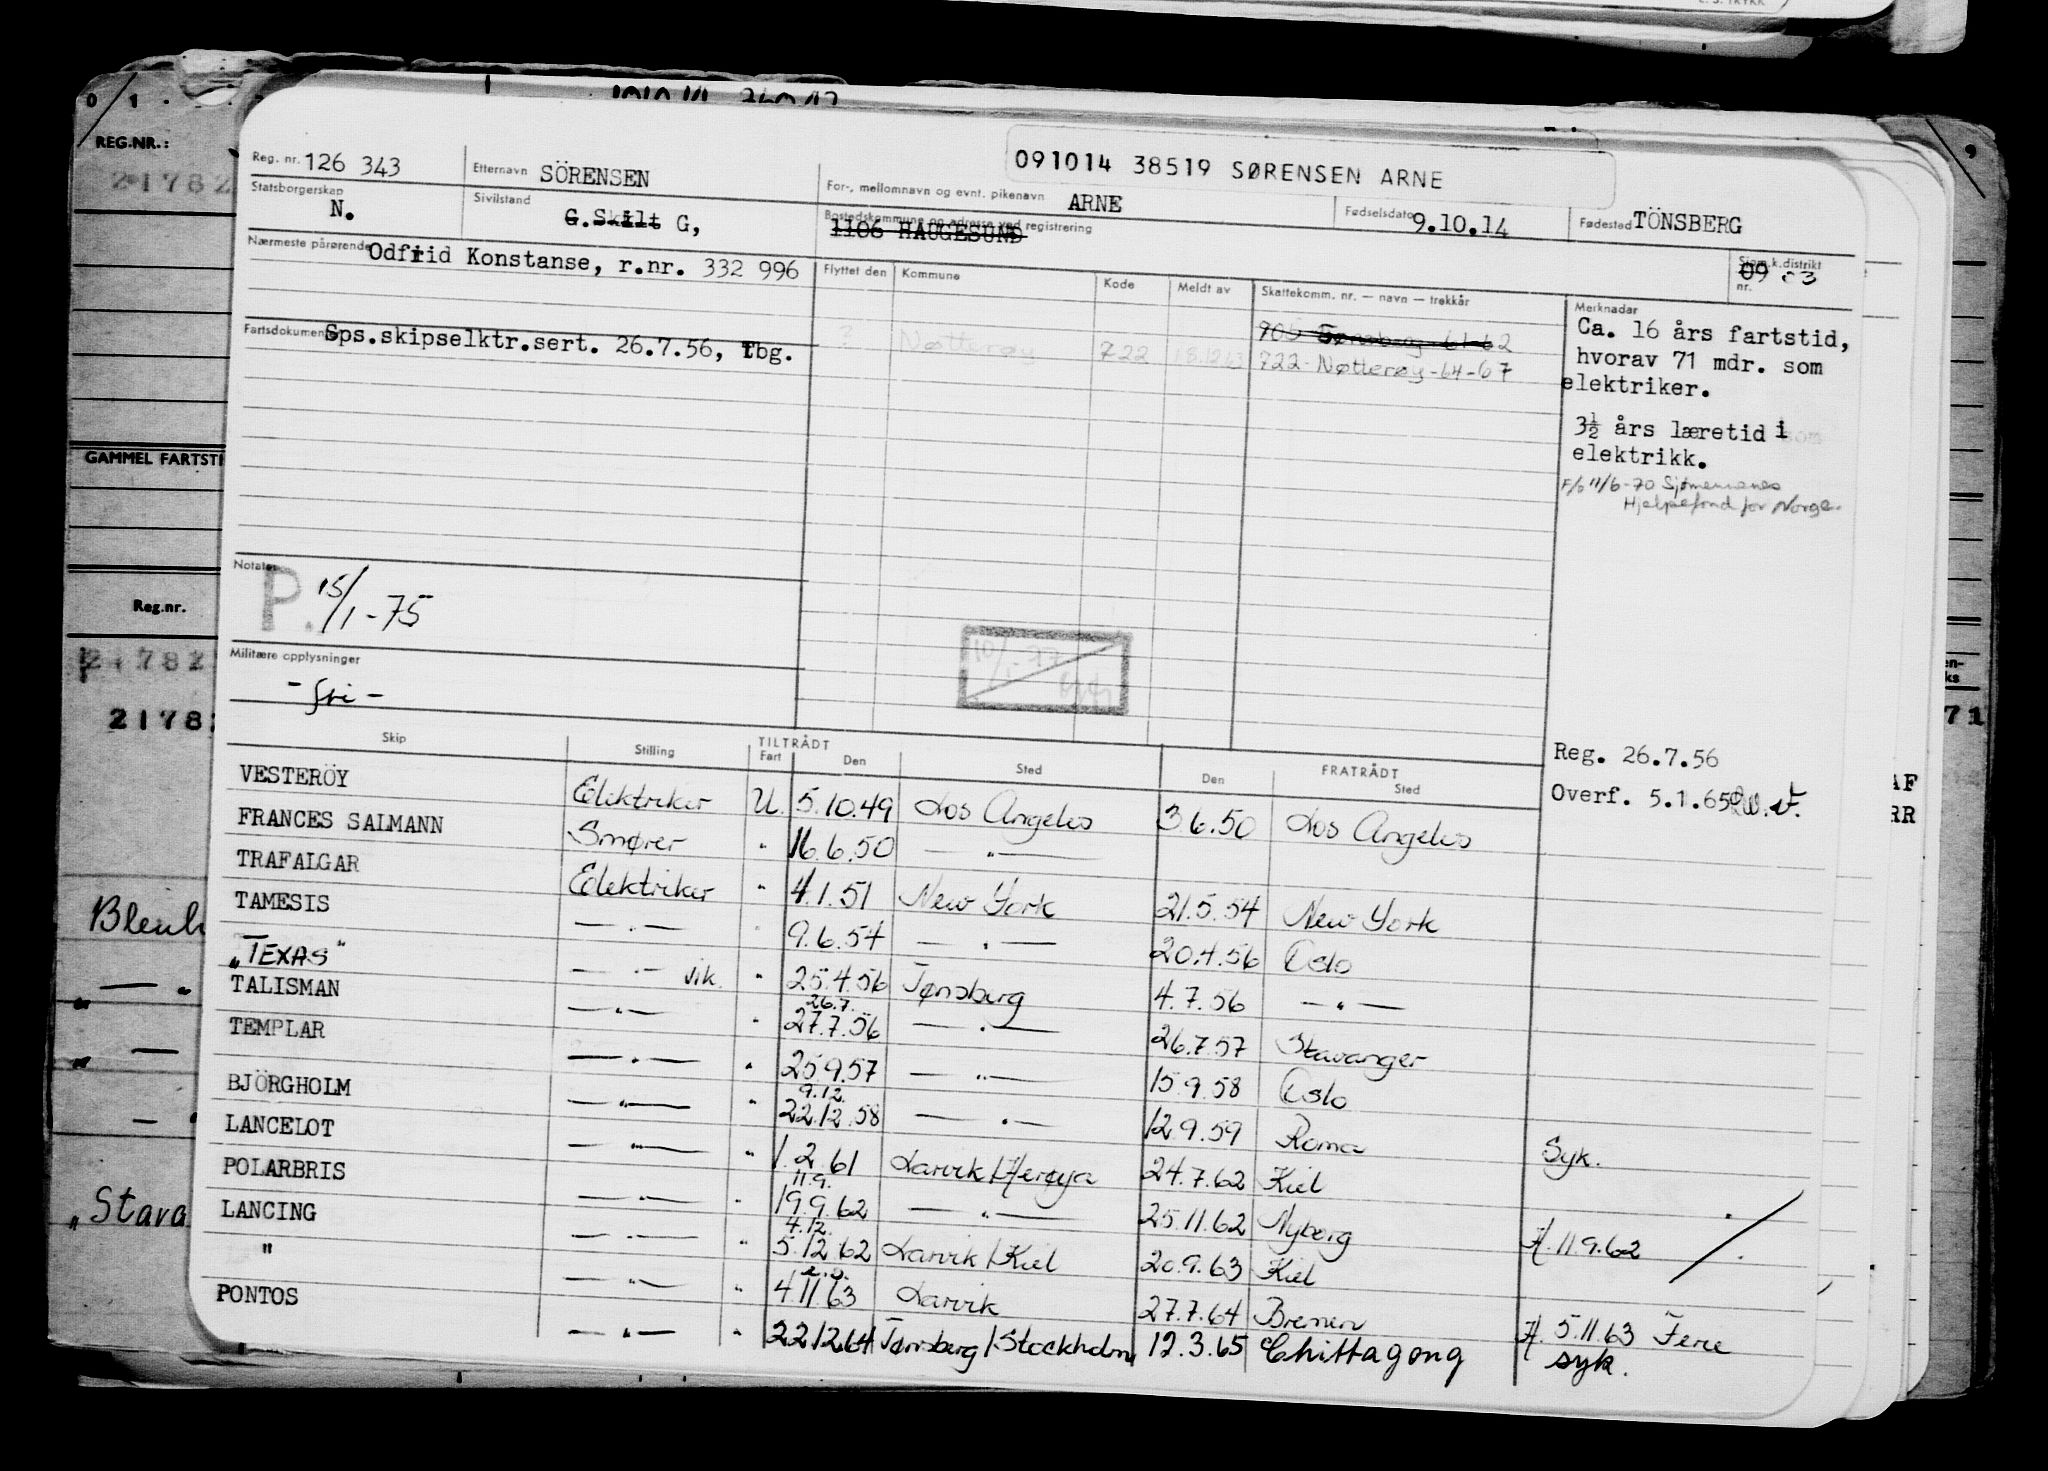 L. S. TRYKK
0 1
REG.NR.:
21782
GAMMEL FARTSTI
Reg.nr.
21782
2178
Blenh
„ — "
„ —
„Stava
9
en-
ks
71
AF
RR
091014 38519 SØRENSEN ARNE
Reg. nr. 126 343 Etternavn SÖRENSEN For-, mellomnavn og evnt. pikenavn ARNE
Statsborgerskap N. Sivilstand G.Skilt G, Bostedskommune og adresse ved registrering 1106 HAUGESUND Fødselsdato 9.10.14 Fødested TÖNSBERG
Nærmeste pårørende Odfrid Konstanse, r.nr. 332 996 Flyttet den Kommune Kode Meldt av Skattekomm. nr. — navn — trekkår Sjøm.k.distrikt nr. 09 03
Merknader
Fartsdokumenter Sps.skipselktr.sert. 26.7.56, Tbg.
905 Tønsberg-61-62
Nøtterøy 722 18.12.63 722-Nøtterøy-64-67
Ca. 16 års fartstid,
hvorav 71 mdr. som
elektriker.
3½ års læretid i
elektrikk.
F/o 11/6-70 Sjømennenes
Hjelpefond for Norge.
Notater P. 15/1-75
10/1-77
Militære opplysninger
- fri -
Reg. 26.7.56
Overf. 5.1.65
Skip Stilling TILTRÅDT Fart Den Sted FRATRÅDT Den Sted
VESTERÖY Elektriker U. 5.10.49 Los Angeles 3 6.50 Los Angeles
FRANCES SALMANN Smører " 16.6.50 — " —
TRAFALGAR Elektriker " 4.1.51 New York 21.5.54 New York
TAMESIS — " — " 9.6.54 — " — 20.4.56 Oslo
„TEXAS" — " — vik. " 25.4.56 Tønsberg 4.7.56 — " —
TALISMAN — " — " 26.7. 27.7.56 — " — 26.7.57 Stavanger
TEMPLAR — " — " 25.9.57 — " — 15.9.58 Oslo
BJÖRGHOLM — " — " 9.12. 22.12.58 — " — 12.9.59 Roma Syk.
LANCELOT — " — " 1.2.61 Larvik/Herøya 24.7.62 Kiel
POLARBRIS — " — " 11.9. 19.9.62 — " — 25.11.62 Nyborg A. 11.9.62
LANCING — " — " 4.12. 5.12.62 Larvik/Kiel 20.9.63 Kiel
" — " — " 4.11.63 Larvik 27.7.64 Bremen A. 5.11.63 Ferie
PONTOS — " — " 22.12.64 Tønsberg/Stockholm 12.3.65 Chittagong syk.